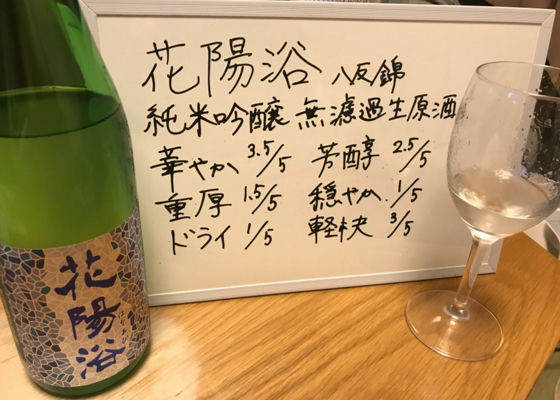 花陽浴 八反錦
純米吟醸 無濾過生原酒
華やか 3.5/5 芳醇 2.5/5
重厚 1.5/5 穏やか 1/5
ドライ 1/5 軽快 3/5
花陽浴